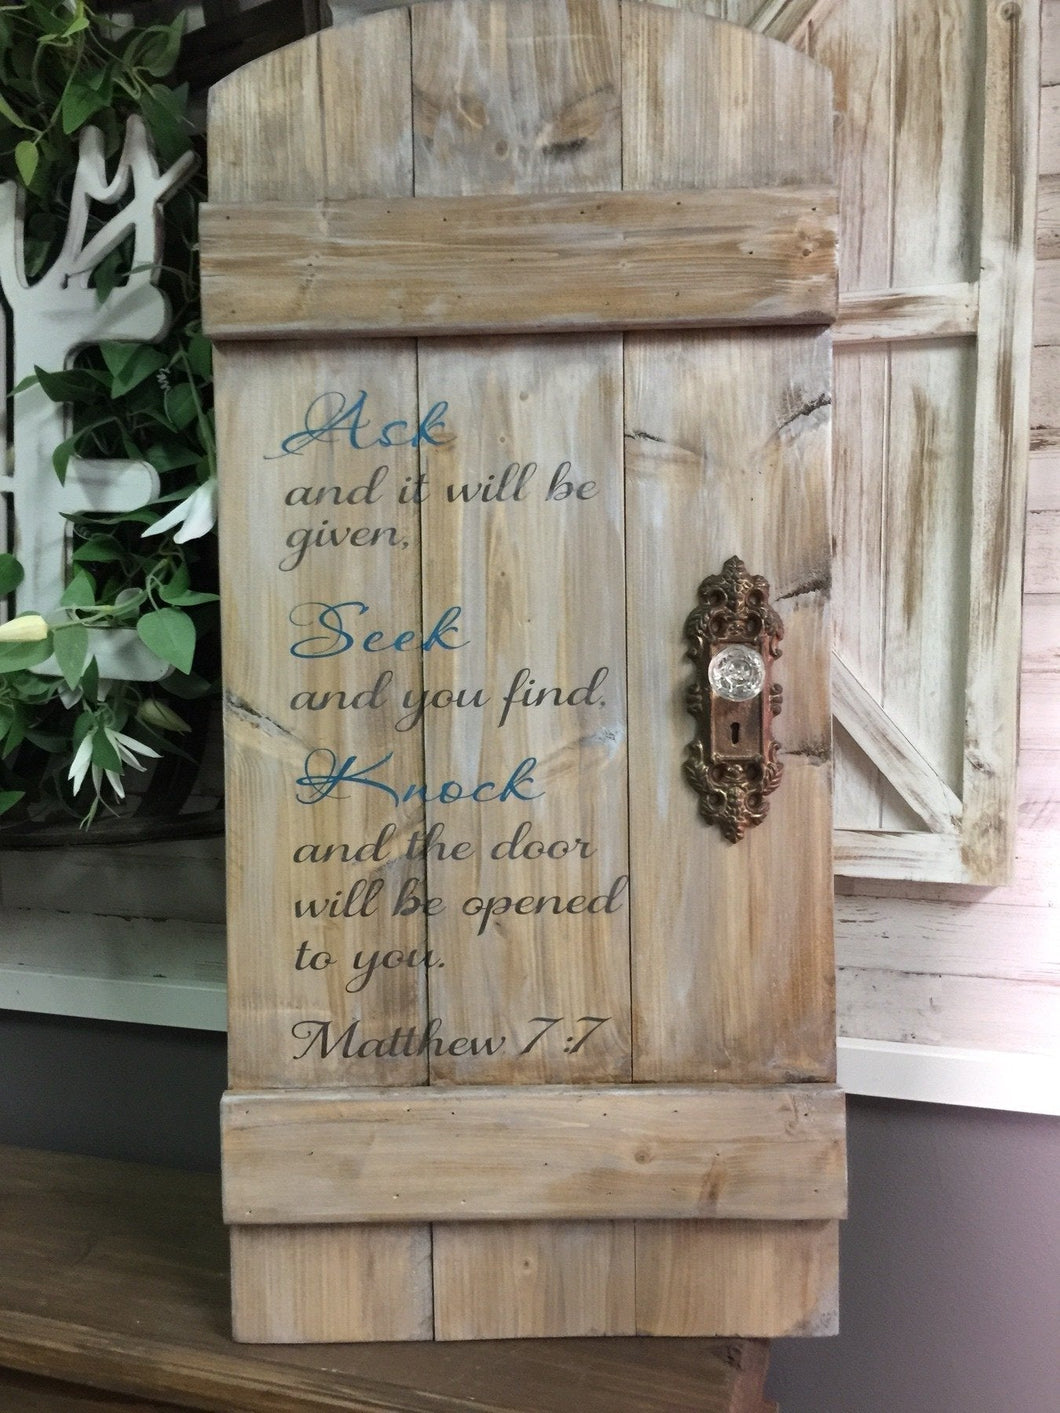 Ask
and it will be
given,
Seek
and you find.
Knock
and the door
will be opened
to you.
Matthew 7:7